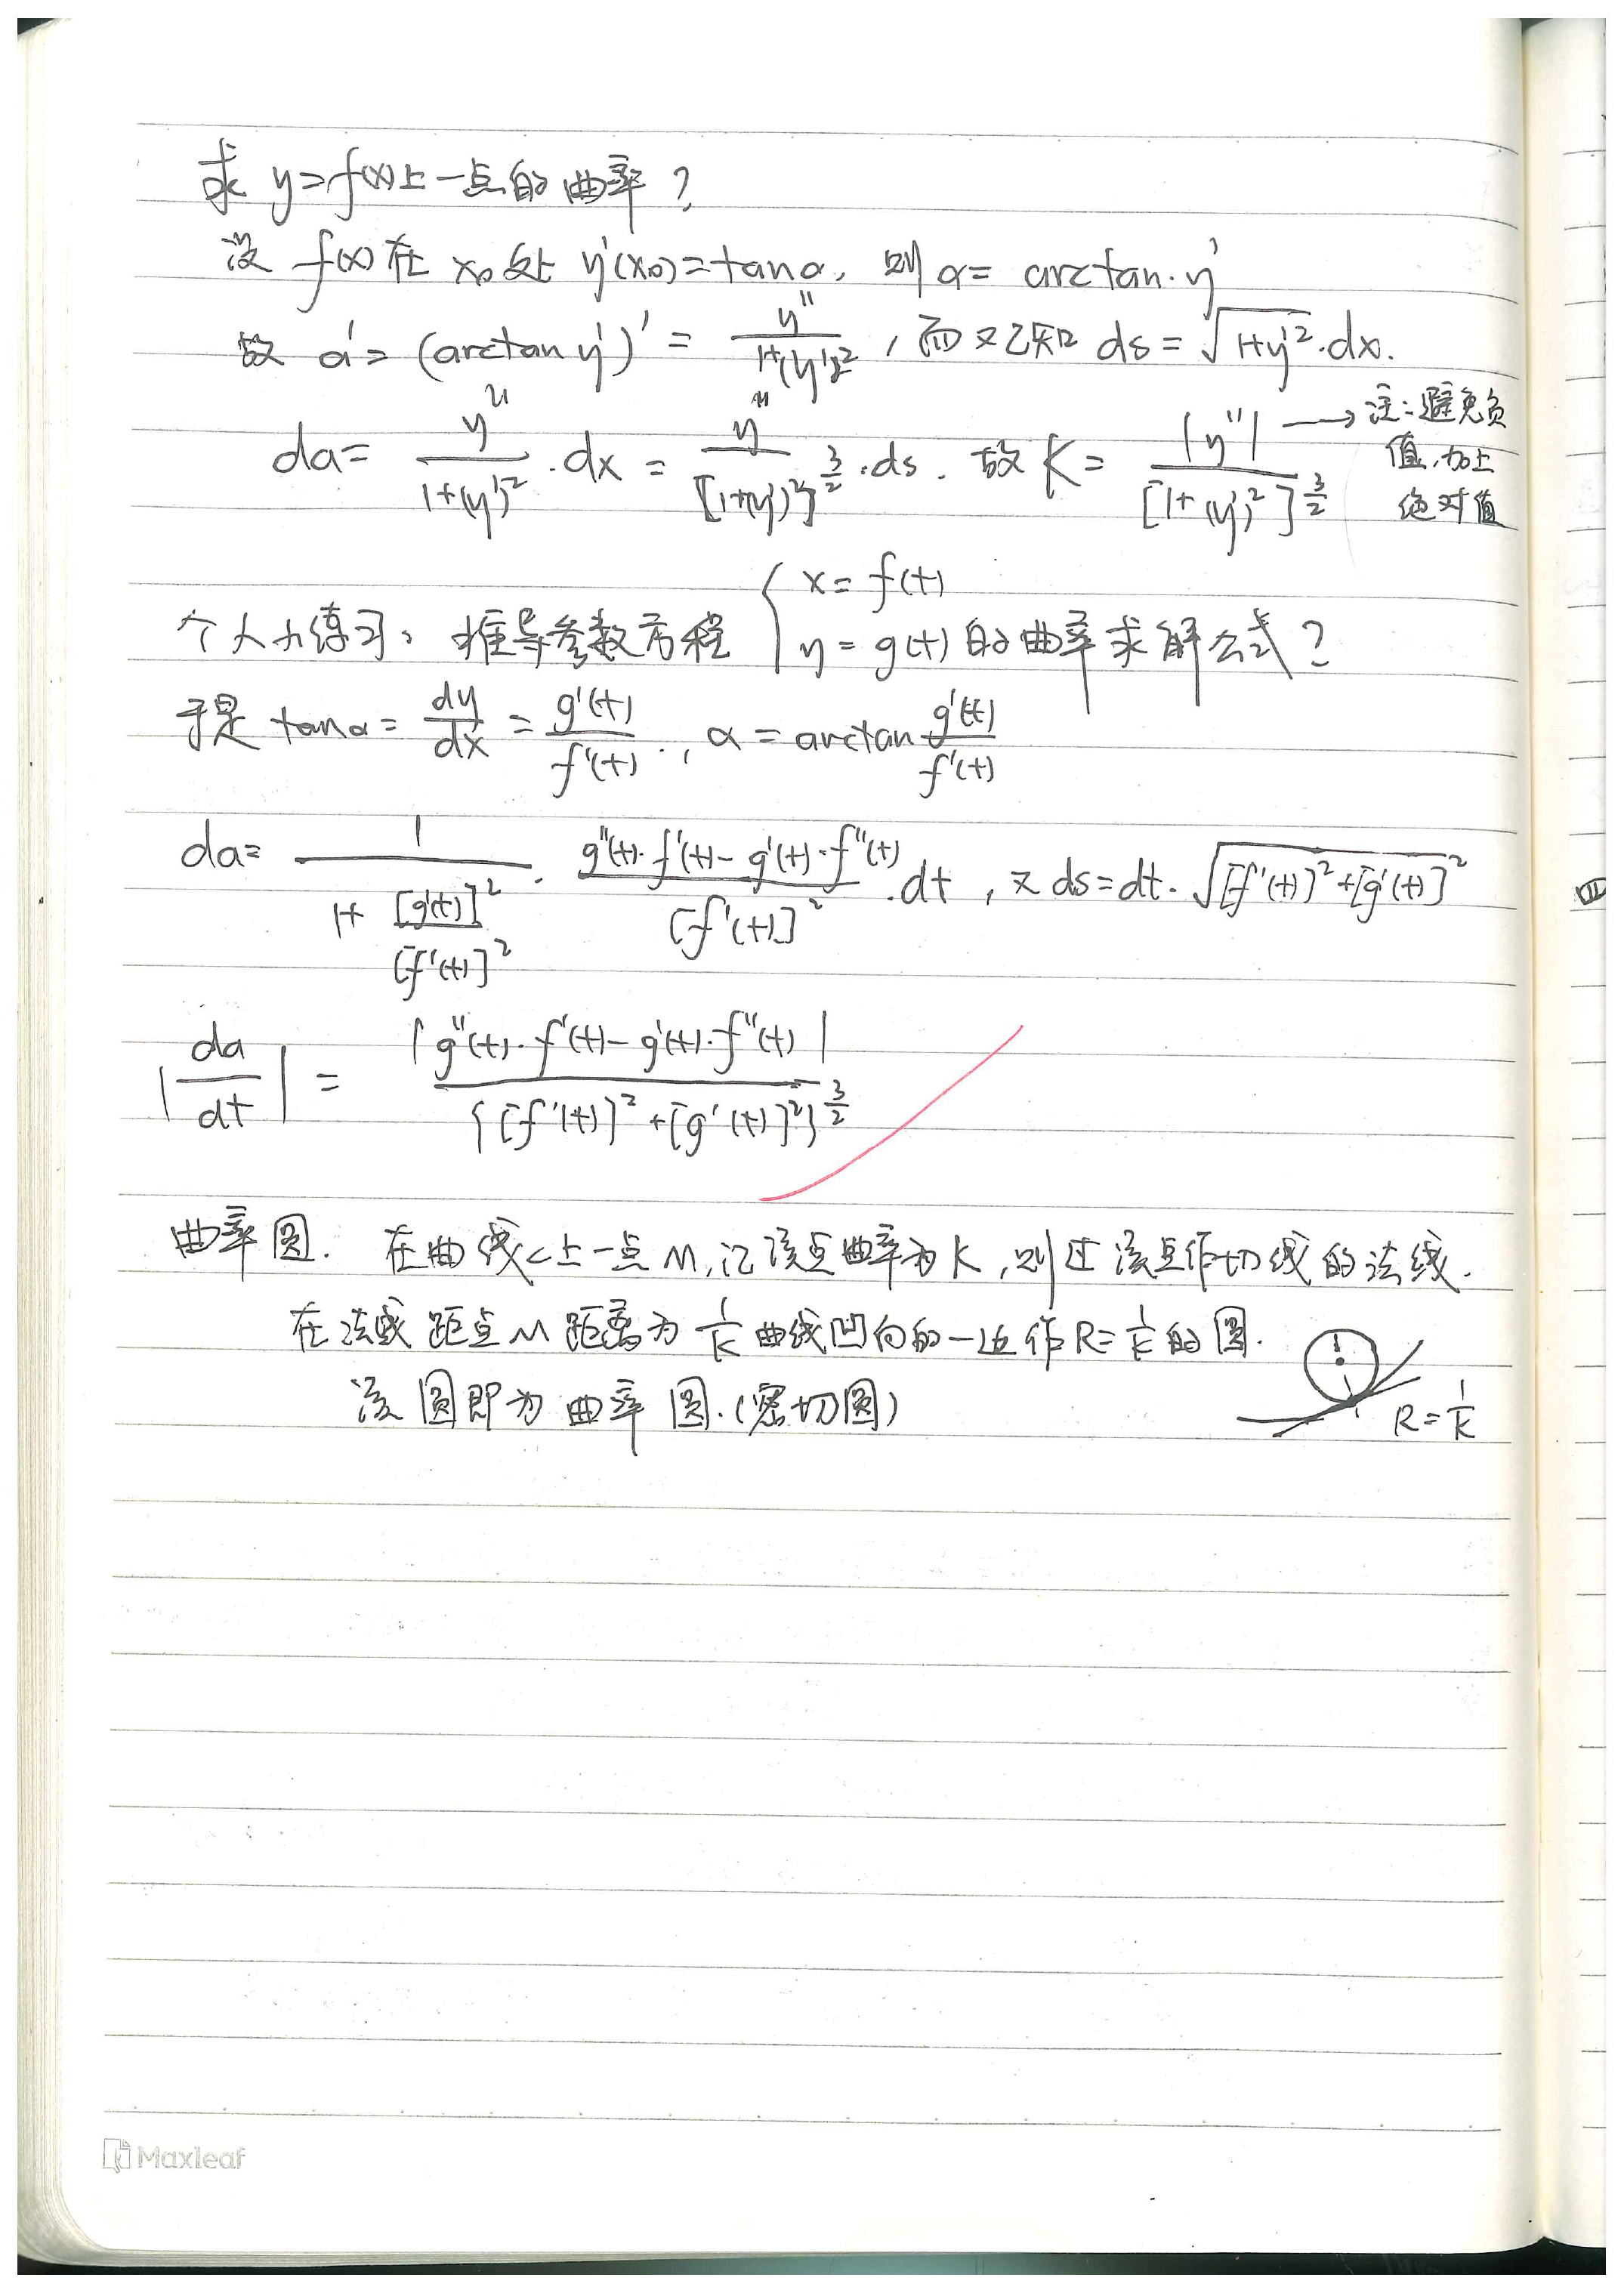 求 y=f(x)上一点的曲率?
设 f(x)在 x₀处 y'(x₀)=tanα, 则 α= arctan·y'
故 α'= (arctan y')' = y''/(1+(y')²) , 而又已知 ds=√(1+y'²)·dx.
dα= y''/(1+(y')²) ·dx = y''/[1+(y')²]^(3/2) ·ds. 故 K= |y''|/[1+(y')²]^(3/2) → 注:避免负
值,加上
绝对值
个人小练习: 推导参数方程 { x=f(t)
y=g(t) 的曲率求解公式?
于是 tanα= dy/dx = g'(t)/f'(t) , α = arctan g'(t)/f'(t)
dα= 1/(1+ [g'(t)]²/[f'(t)]²) · (g''(t)·f'(t)-g'(t)·f''(t))/[f'(t)]² ·dt , 又 ds=dt·√([f'(t)]²+[g'(t)]²)
|dα/dt| = |g''(t)·f'(t)-g'(t)·f''(t)|/{[f'(t)]²+[g'(t)]²}^(3/2)
曲率圆. 在曲线C上一点M,记该点曲率为K,则过该点作切线的法线.
在法线距点M距离为 1/K 曲线凹向的一边作R=1/K的圆.
该圆即为曲率圆.(密切圆)
R=1/K
Maxleaf